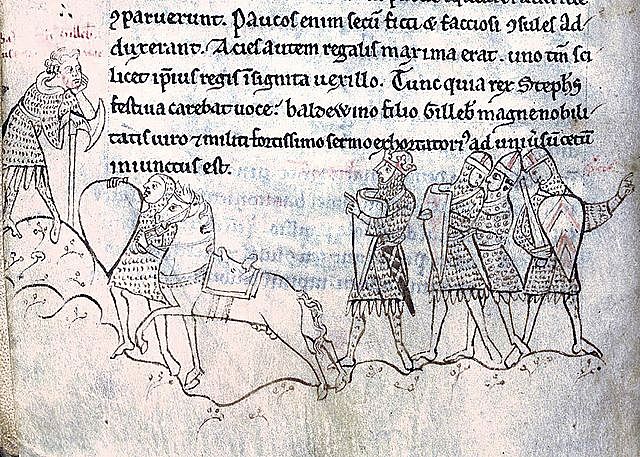 ꝯparuerunt. Paucos enim secū ficti & facciosi ꝯsules ad/
duxerant. Acies autem regalis maxima erat. uno tm̄ sci
licet ip̄ius regis ī signita uexillo. Tunc quia rex Stephs
festiua carebat uoce: baldewino filio Gilleb̄ magne nobili/
tatis uiro ⁊ militi fortissimo sermo exhortatoriꝰ ad uniūsū cetū
iniunctus est.